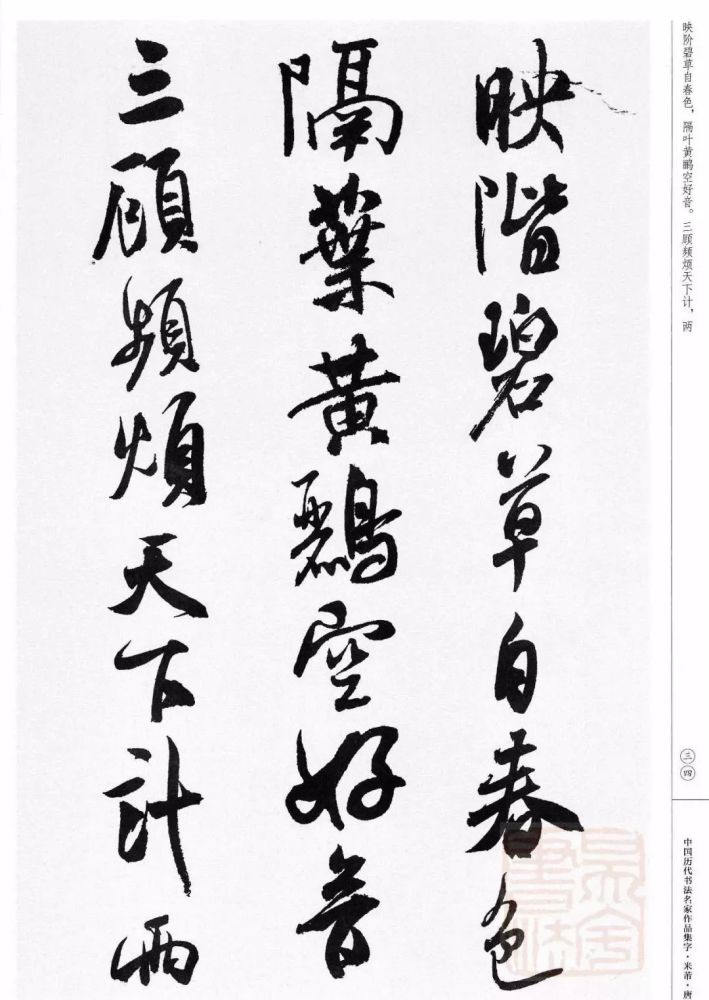 映階碧草自春色
隔葉黃鸝空好音
三顧頻煩天下計兩
映阶碧草自春色，隔叶黄鹂空好音。三顾频烦天下计，两
三四
中国历代书法名家作品集字·米芾·唐